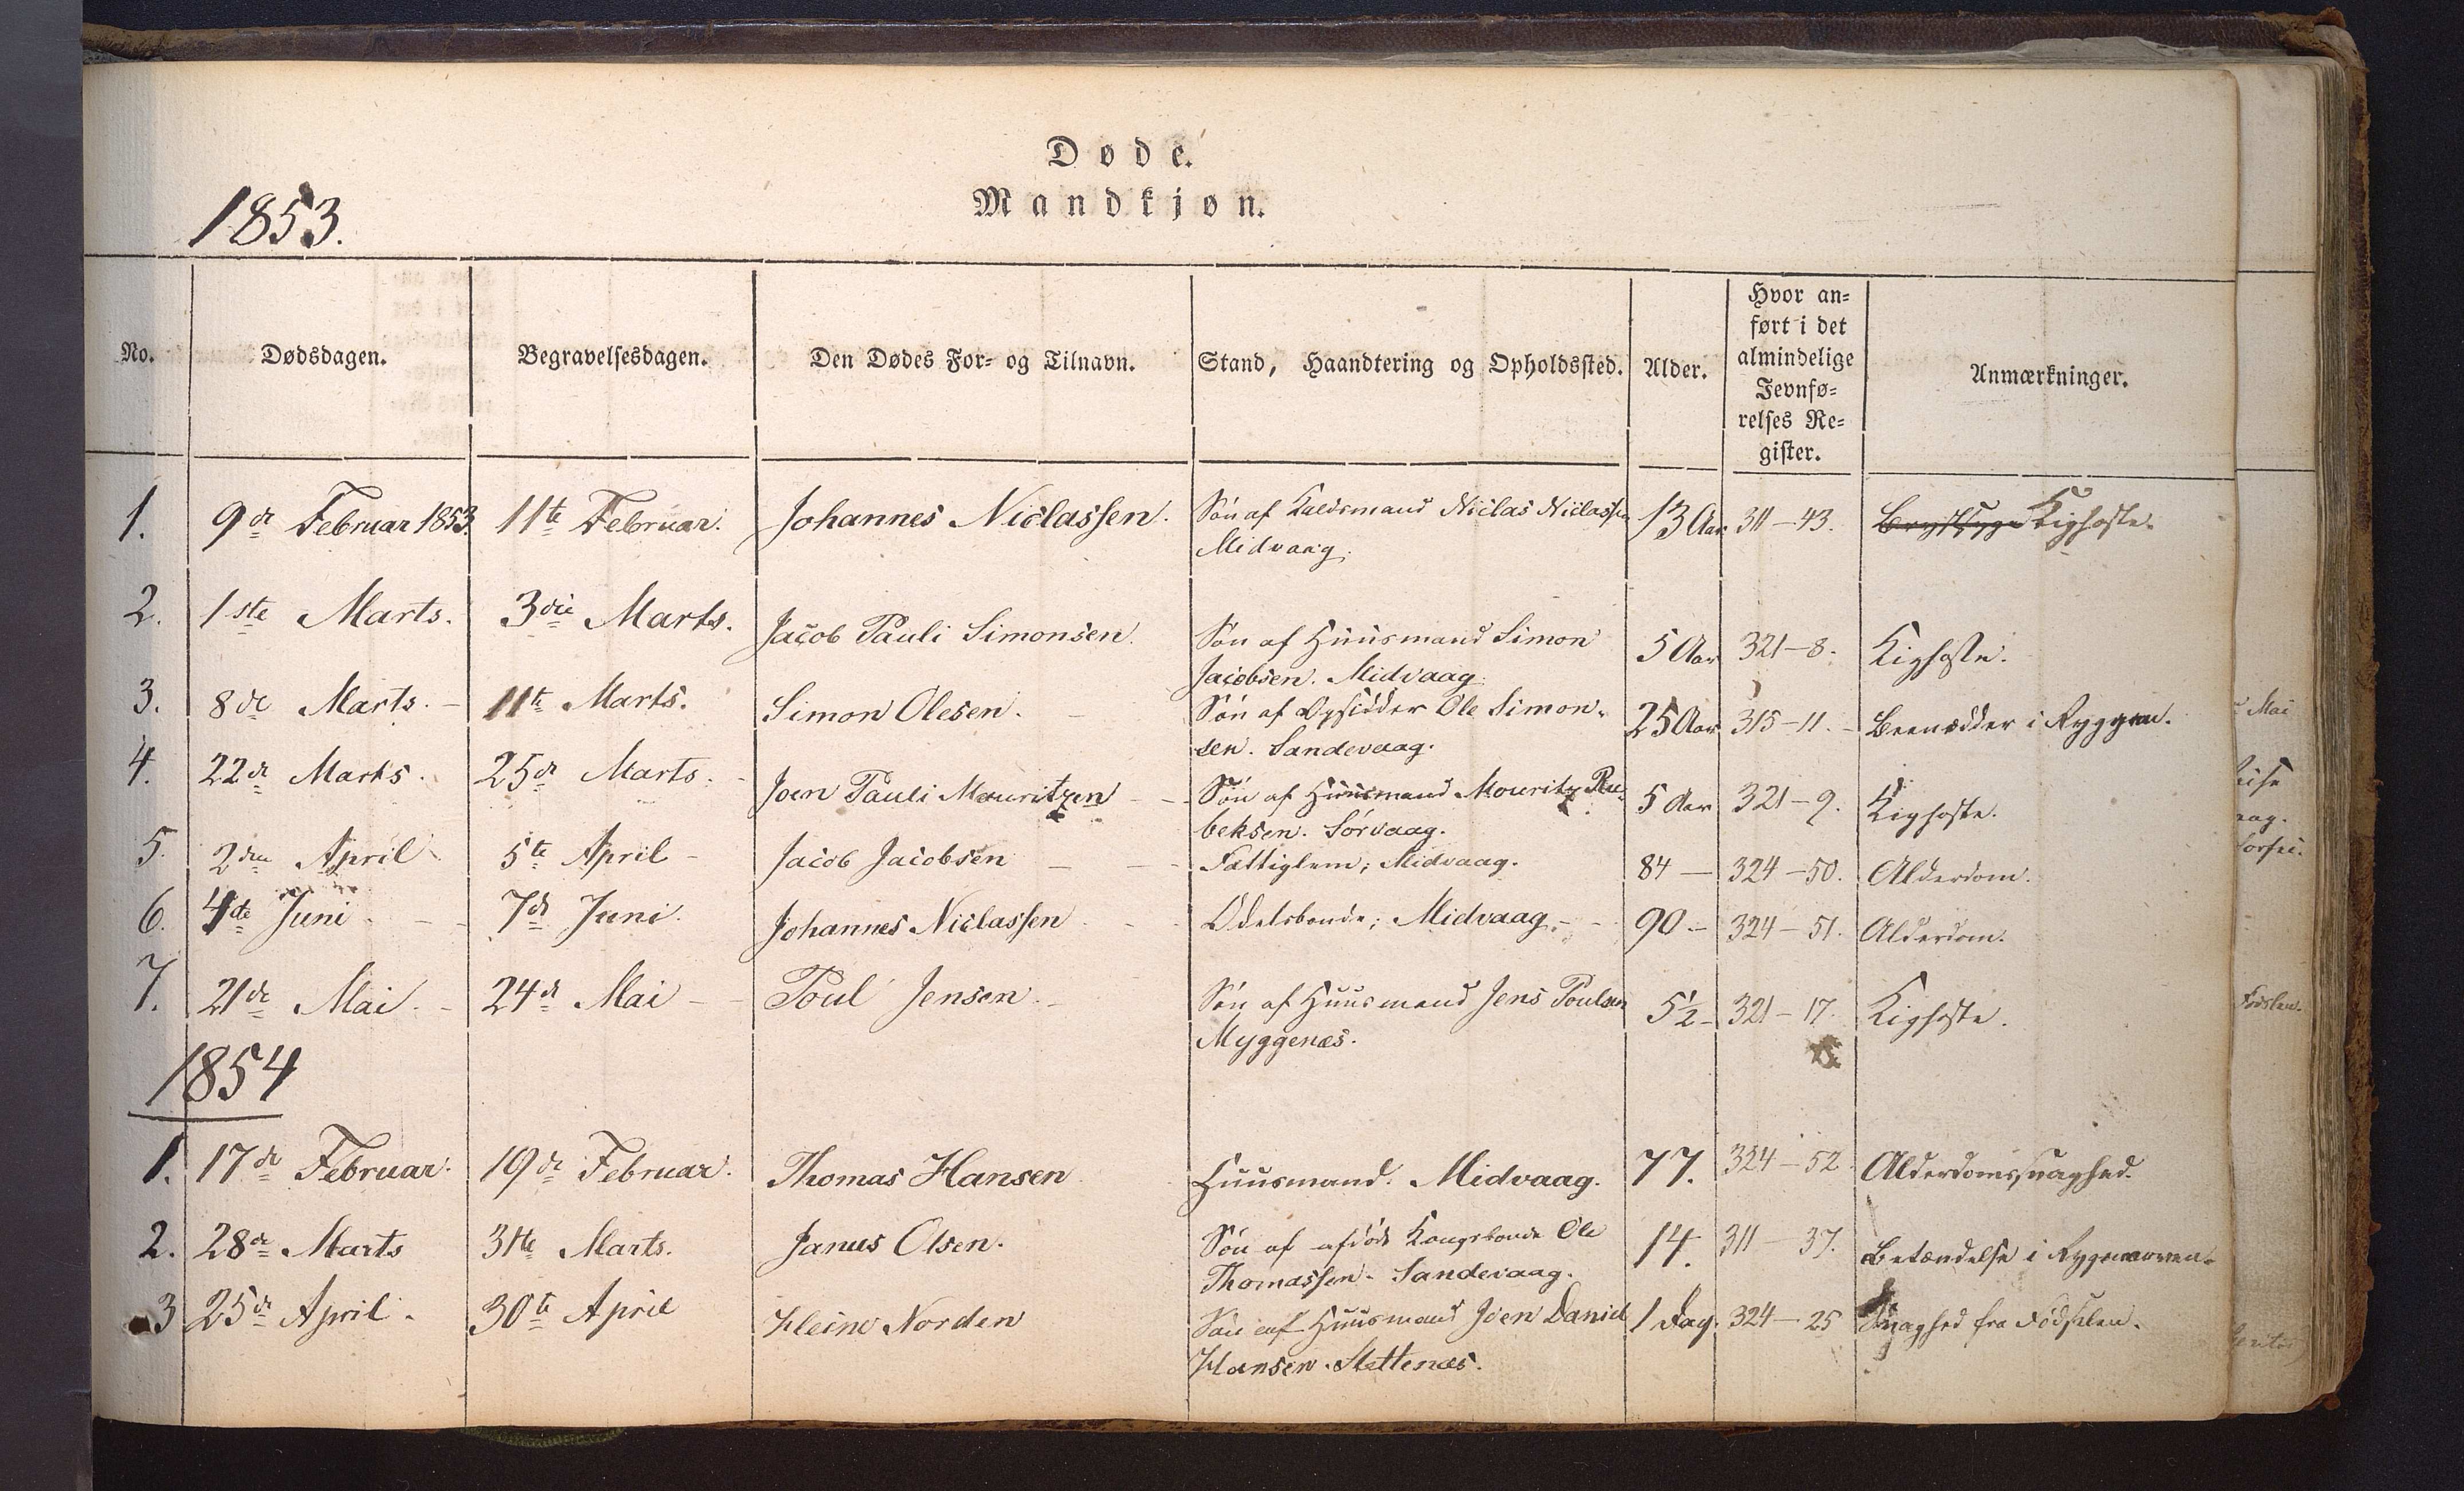 Døde.
Mandkjøn.
1853.
No. Dødsdagen. Begravelsesdagen. Den Dødes For- og Tilnavn. Stand, Haandtering og Opholdssted. Alder. Hvor an-
ført i det
almindelige
Jevnfø-
relses Re-
gister. Anmærkninger.
1. 9de Februar 1853. 11te Februar. Johannes Niclassen. Søn af Niclas Niclassen 13 Aar 311-43. Brystsyge Kighoste.
Midvaag.
2. 1ste Marts. 3die Marts. Jacob Pauli Simonsen. Søn af Huusmand Simon 5 Aar 321-8. Kighoste.
Jacobsen. Midvaag.
3. 8de Marts. 11te Marts. Simon Olesen. Søn af Opsidder Ole Simon- 25 Aar 315-11. Beenædder i Ryggen.
sen. Sandevaag.
4. 22de Marts. 25de Marts. Joen Pauli Mouritzen Søn af Huusmand Mouritz Re- 5 Aar 321-9. Kighoste.
beksen. Sørvaag.
5. 2den April 5te April Jacob Jacobsen Fattiglem; Midvaag. 84 324-50. Alderdom.
6. 4de Juni 7de Juni. Johannes Niclassen Odelsbonde; Midvaag. 90 324-51. Alderdom.
7. 21de Mai. 24de Mai Poul Jensen Søn af Huusmand Jens Poulsen 5½ 321-17. Kighoste.
Myggenæs.
1854
1. 17de Februar. 19de Februar. Thomas Hansen Huusmand. Midvaag. 77. 324-52. Alderdomssvaghed.
2. 28de Marts 31te Marts. Janus Olsen. Søn af afdøde Kongsbonde Ole 14. 311-37. Betændelse i Rygmarven.
Thomassen. Sandevaag.
3 25de April. 30te April Kleine Norden Søn af Huusmand Joen Daniel 1 Dag. 324-25 Svaghed fra Fødselen.
Hansen. Slettenæs.
Mai
Fødslen.